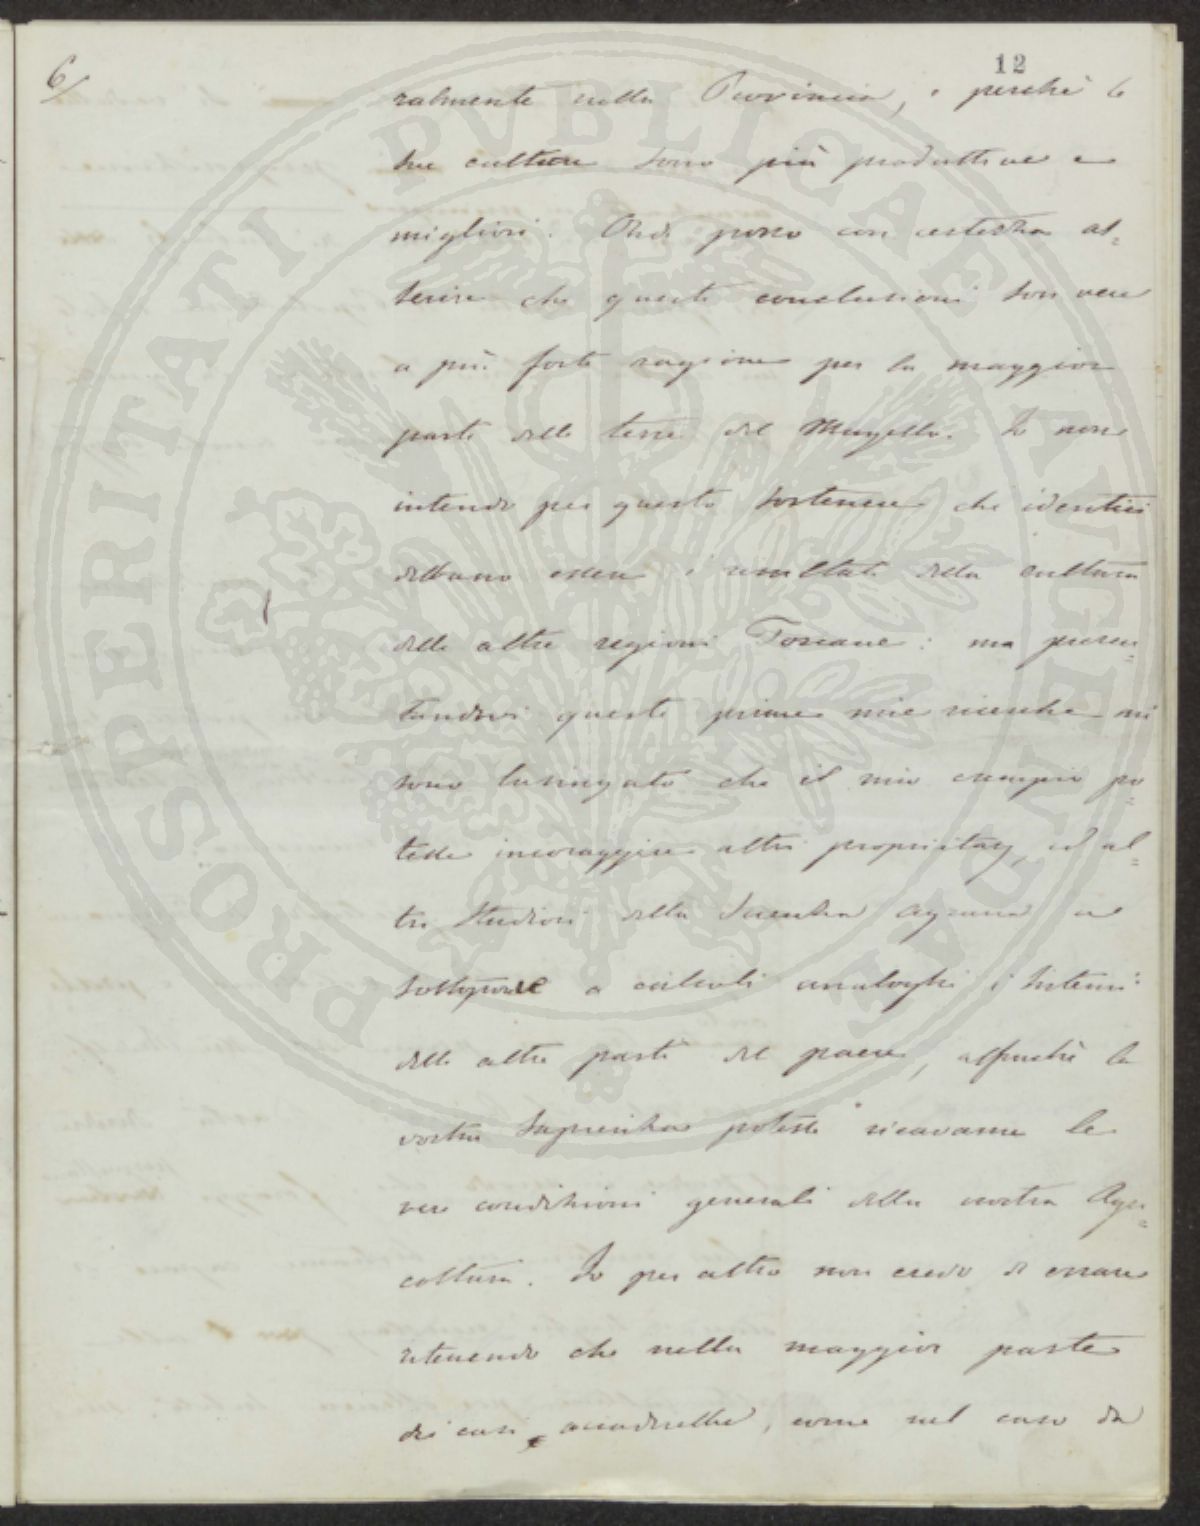 6/
12
ralmente nella Provincia, e perchè le
sue culture sono più produttive e
migliori. Onde posso con certezza as=
serire che queste conclusioni son vere
a più forte ragione per la maggior
parte delle terre del Mugello. Io non
intendo per questo sostenere che identici
debbano essere i resultati della cultura
delle altre regioni Toscane: ma presen=
tandovi queste prime mie ricerche mi
sono lusingato che il mio esempio po=
tesse incoraggire altri proprietarj, ed al=
tri studiosi della Scienza Agraria a
sottoporre a calcoli analoghi i sistemi
delle altre parti del paese, affinchè la
vostra Sapienza potesse ricavarne le
vere condizioni generali della nostra Agri=
coltura. Io per altro non credo di errare
ritenendo che nella maggior parte
dei casi accadrebbe, come nel caso da
PROSPERITATI PVBLICAE AVGENDAE